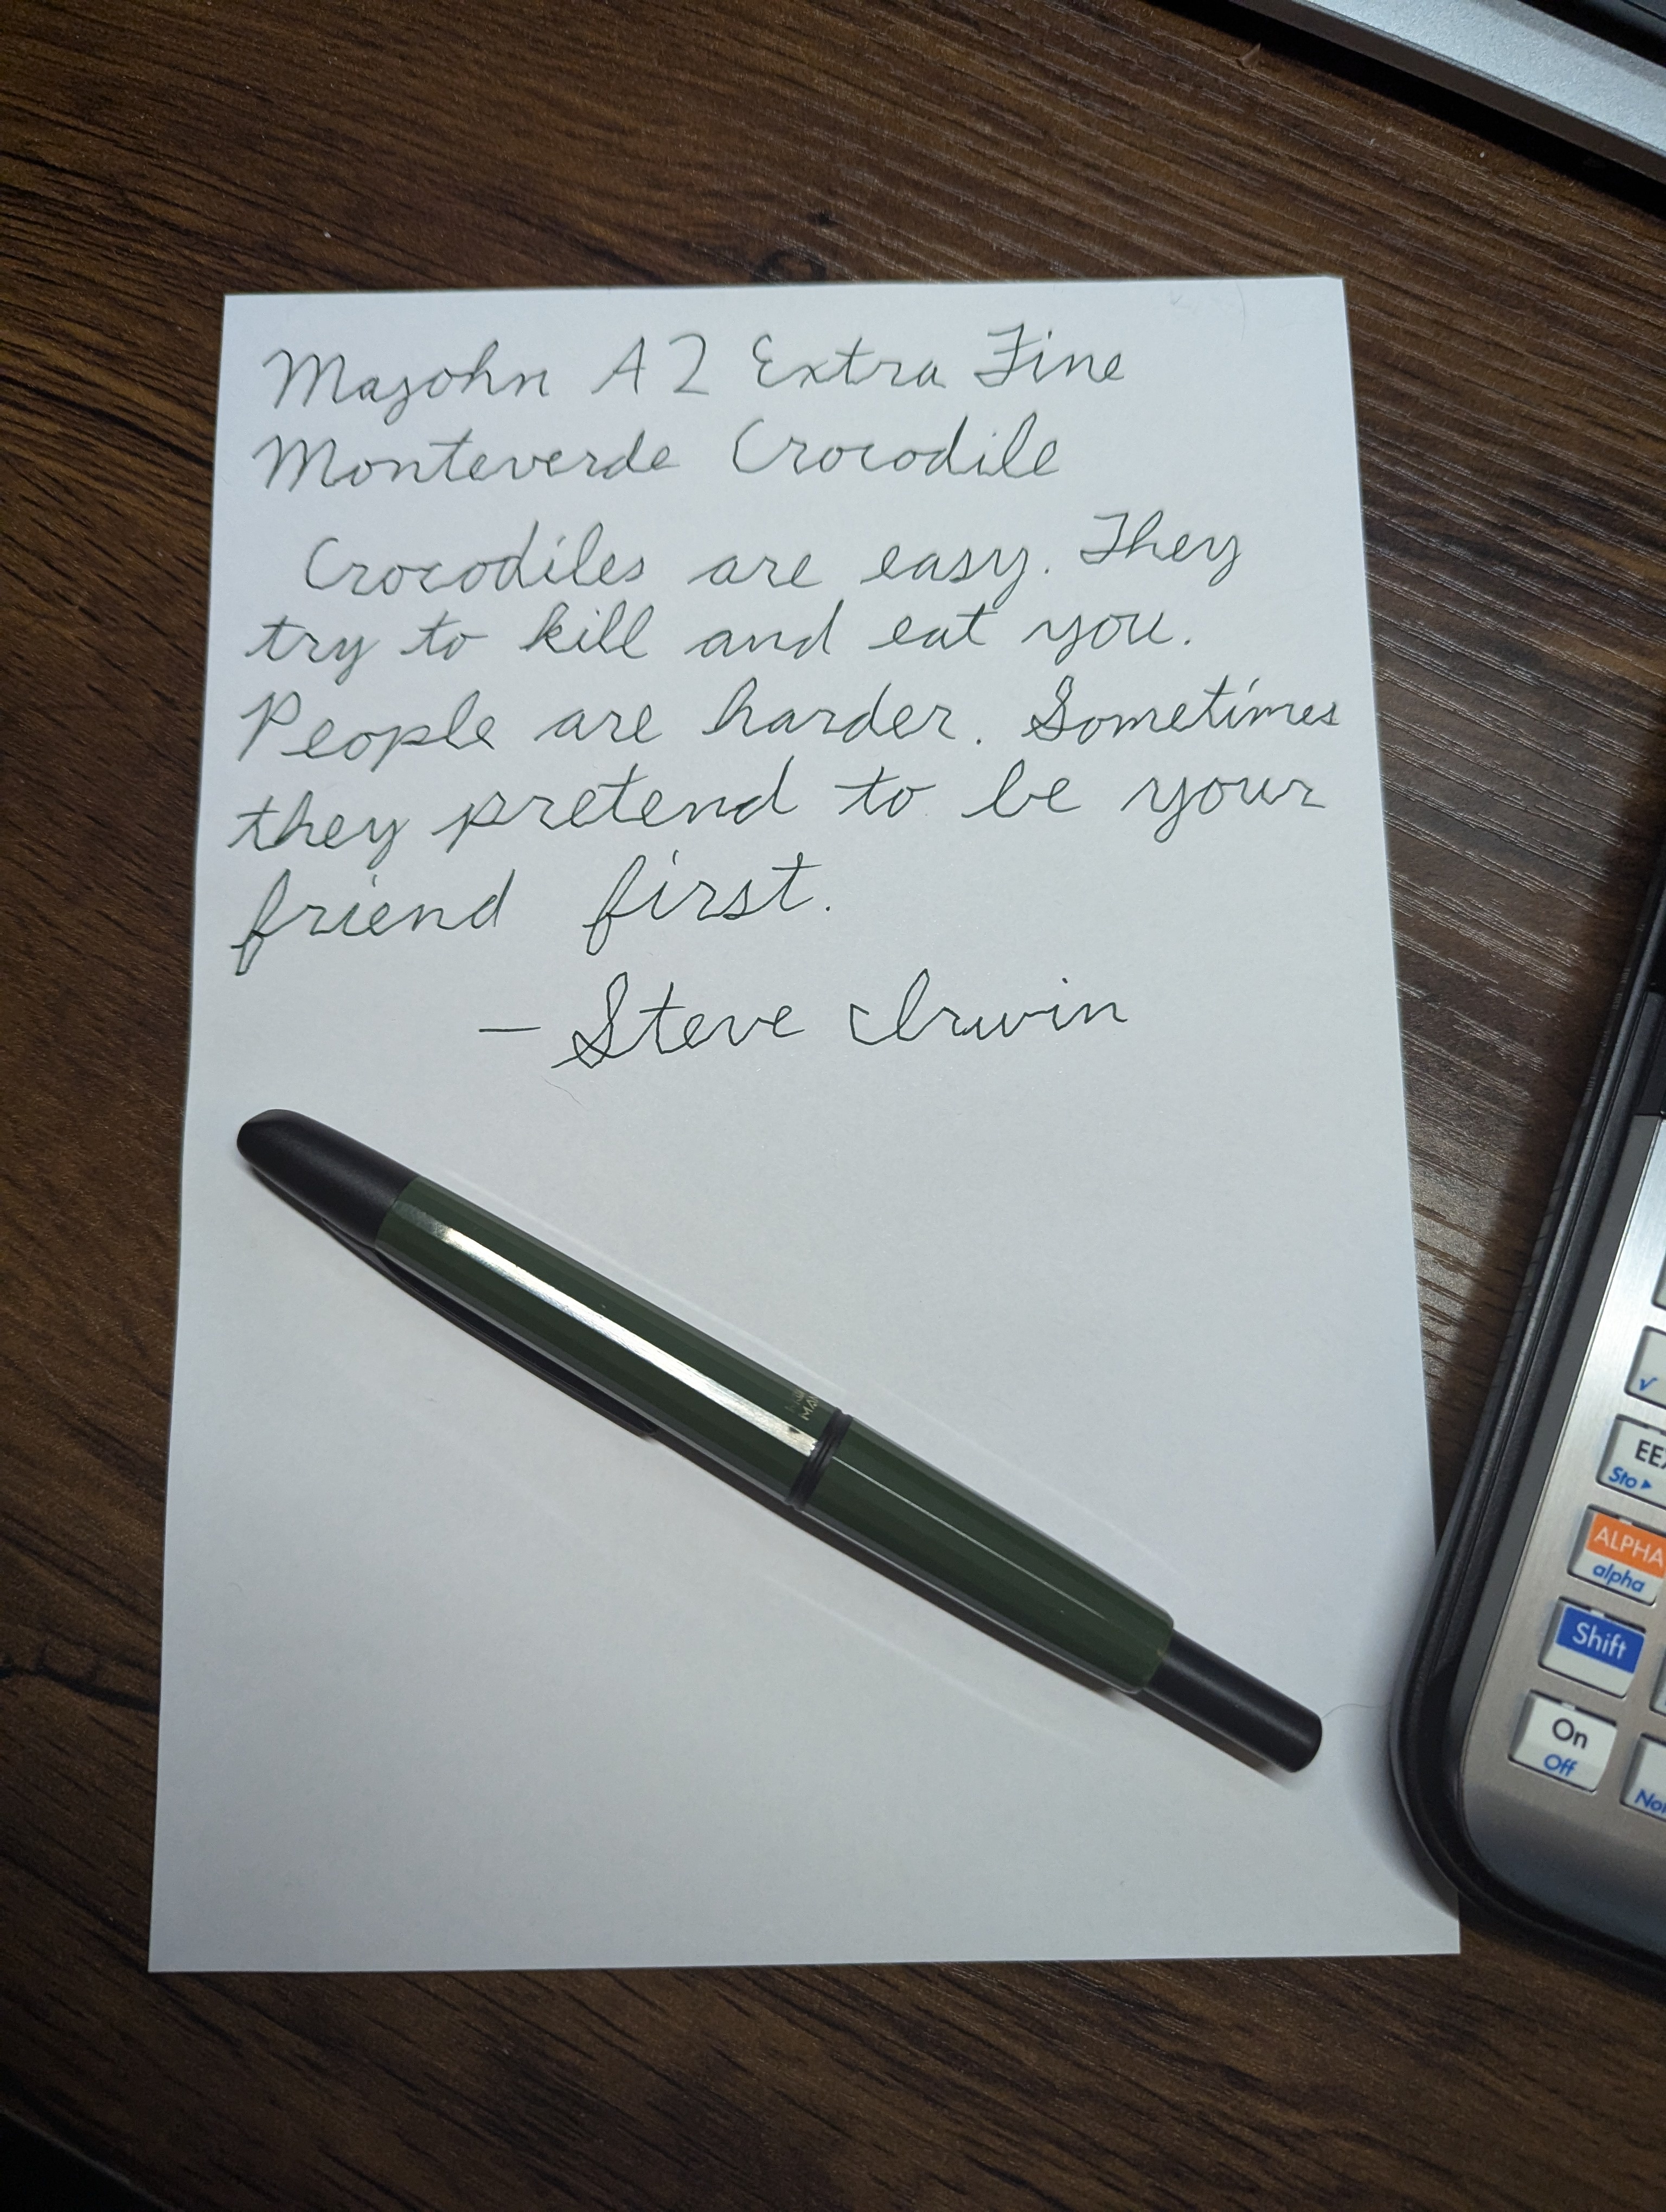 Majohn A2 Extra Fine
Monteverde Crocodile
Crocodiles are easy. They
try to kill and eat you.
People are harder. Sometimes
they pretend to be your
friend first.
- Steve Irwin
√
EE
Sto ▸
ALPHA
alpha
Shift
On
Off